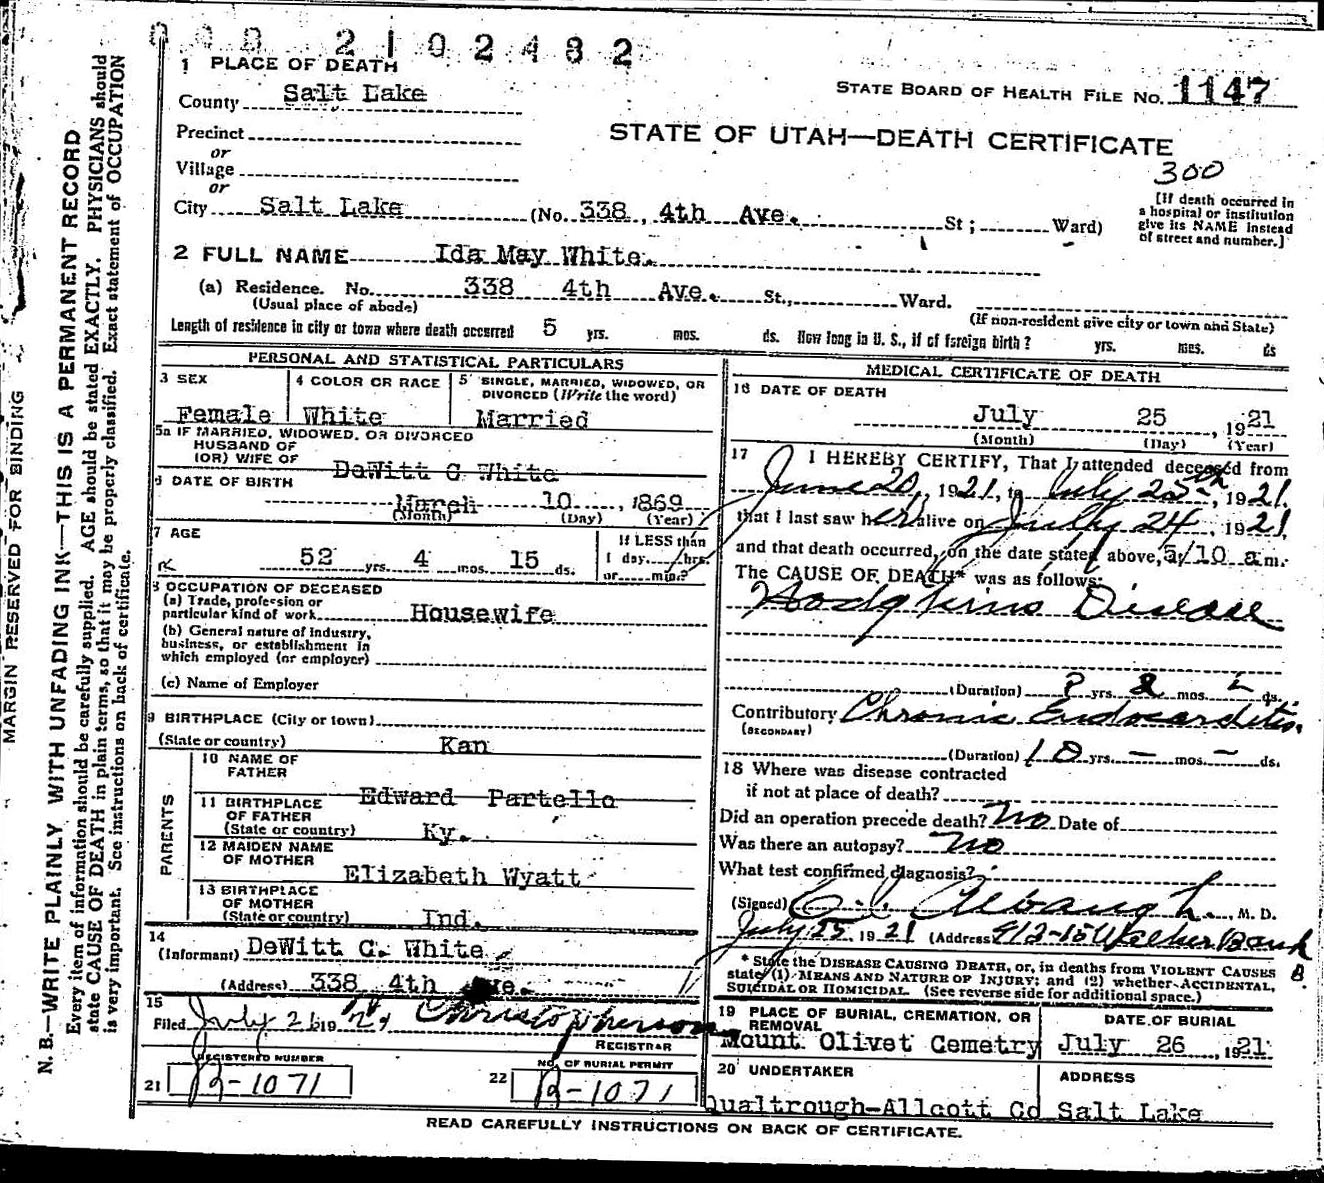 2102432
1 PLACE OF DEATH
County Salt Lake
STATE BOARD OF HEALTH FILE NO. 1147
Precinct
or
Village
or
STATE OF UTAH—DEATH CERTIFICATE
300
City Salt Lake (No. 338, 4th Ave. St; Ward)
[If death occurred in
a hospital or institution
give its NAME instead
of street and number.]
2 FULL NAME Ida May White.
(a) Residence. No. 338 4th Ave. St., Ward.
(Usual place of abode)
(If non-resident give city or town and State)
Length of residence in city or town where death occurred 5 yrs. mos. ds. How long in U. S., if of foreign birth? yrs. mes. ds
PERSONAL AND STATISTICAL PARTICULARS
3 SEX
Female
4 COLOR OR RACE
White
5 SINGLE, MARRIED, WIDOWED, OR
DIVORCED (Write the word)
Married
5a IF MARRIED, WIDOWED, OR DIVORCED
HUSBAND OF
(OR) WIFE OF DeWitt C White
6 DATE OF BIRTH
March 10, 1869
(Month) (Day) (Year)
7 AGE
52 yrs. 4 mos. 15 ds.
If LESS than
1 day, hrs.
or min?
8 OCCUPATION OF DECEASED
(a) Trade, profession or
particular kind of work Housewife
(b) General nature of industry,
business, or establishment in
which employed (or employer)
(c) Name of Employer
9 BIRTHPLACE (City or town)
(State or country) Kan
PARENTS
10 NAME OF
FATHER Edward Partello
11 BIRTHPLACE
OF FATHER
(State or country) Ky.
12 MAIDEN NAME
OF MOTHER Elizabeth Wyatt
13 BIRTHPLACE
OF MOTHER
(State or country) Ind.
14
(Informant) DeWitt C. White
(Address) 338 4th Ave.
15
Filed July 26 19 Christopherson
REGISTRAR
REGISTERED NUMBER
21 B-1071
NO. OF BURIAL PERMIT
22 B-1071
MEDICAL CERTIFICATE OF DEATH
16 DATE OF DEATH
July 25, 1921
(Month) (Day) (Year)
17 I HEREBY CERTIFY, That I attended deceased from
June 20, 1921, to July 25th, 1921.
that I last saw her alive on July 24, 1921,
and that death occurred, on the date stated above, 5/10 a m.
The CAUSE OF DEATH* was as follows:
Hodgkins Disease
(Duration) ? yrs. 2 mos. ds.
Contributory Chronic Endocarditis.
(SECONDARY)
(Duration) 10 yrs. — mos. — ds.
18 Where was disease contracted
if not at place of death?
Did an operation precede death? No Date of
Was there an autopsy? No
What test confirmed diagnosis?
(Signed) Albaugh, M. D.
July 25, 1921 (Address) 912-15 Walker Bank
B.
* State the DISEASE CAUSING DEATH, or, in deaths from VIOLENT CAUSES
state (1) MEANS AND NATURE OF INJURY; and (2) whether ACCIDENTAL,
SUICIDAL OR HOMICIDAL. (See reverse side for additional space.)
19 PLACE OF BURIAL, CREMATION, OR
REMOVAL
Mount Olivet Cemetry
DATE OF BURIAL
July 26, 1921
20 UNDERTAKER
Qualtrough-Allcott Co
ADDRESS
Salt Lake
READ CAREFULLY INSTRUCTIONS ON BACK OF CERTIFICATE.
MARGIN RESERVED FOR BINDING
N. B.—WRITE PLAINLY WITH UNFADING INK—THIS IS A PERMANENT RECORD
Every item of information should be carefully supplied. AGE should be stated EXACTLY. PHYSICIANS should
state CAUSE OF DEATH in plain terms, so that it may be properly classified. Exact statement of OCCUPATION
is very important. See instructions on back of certificate.